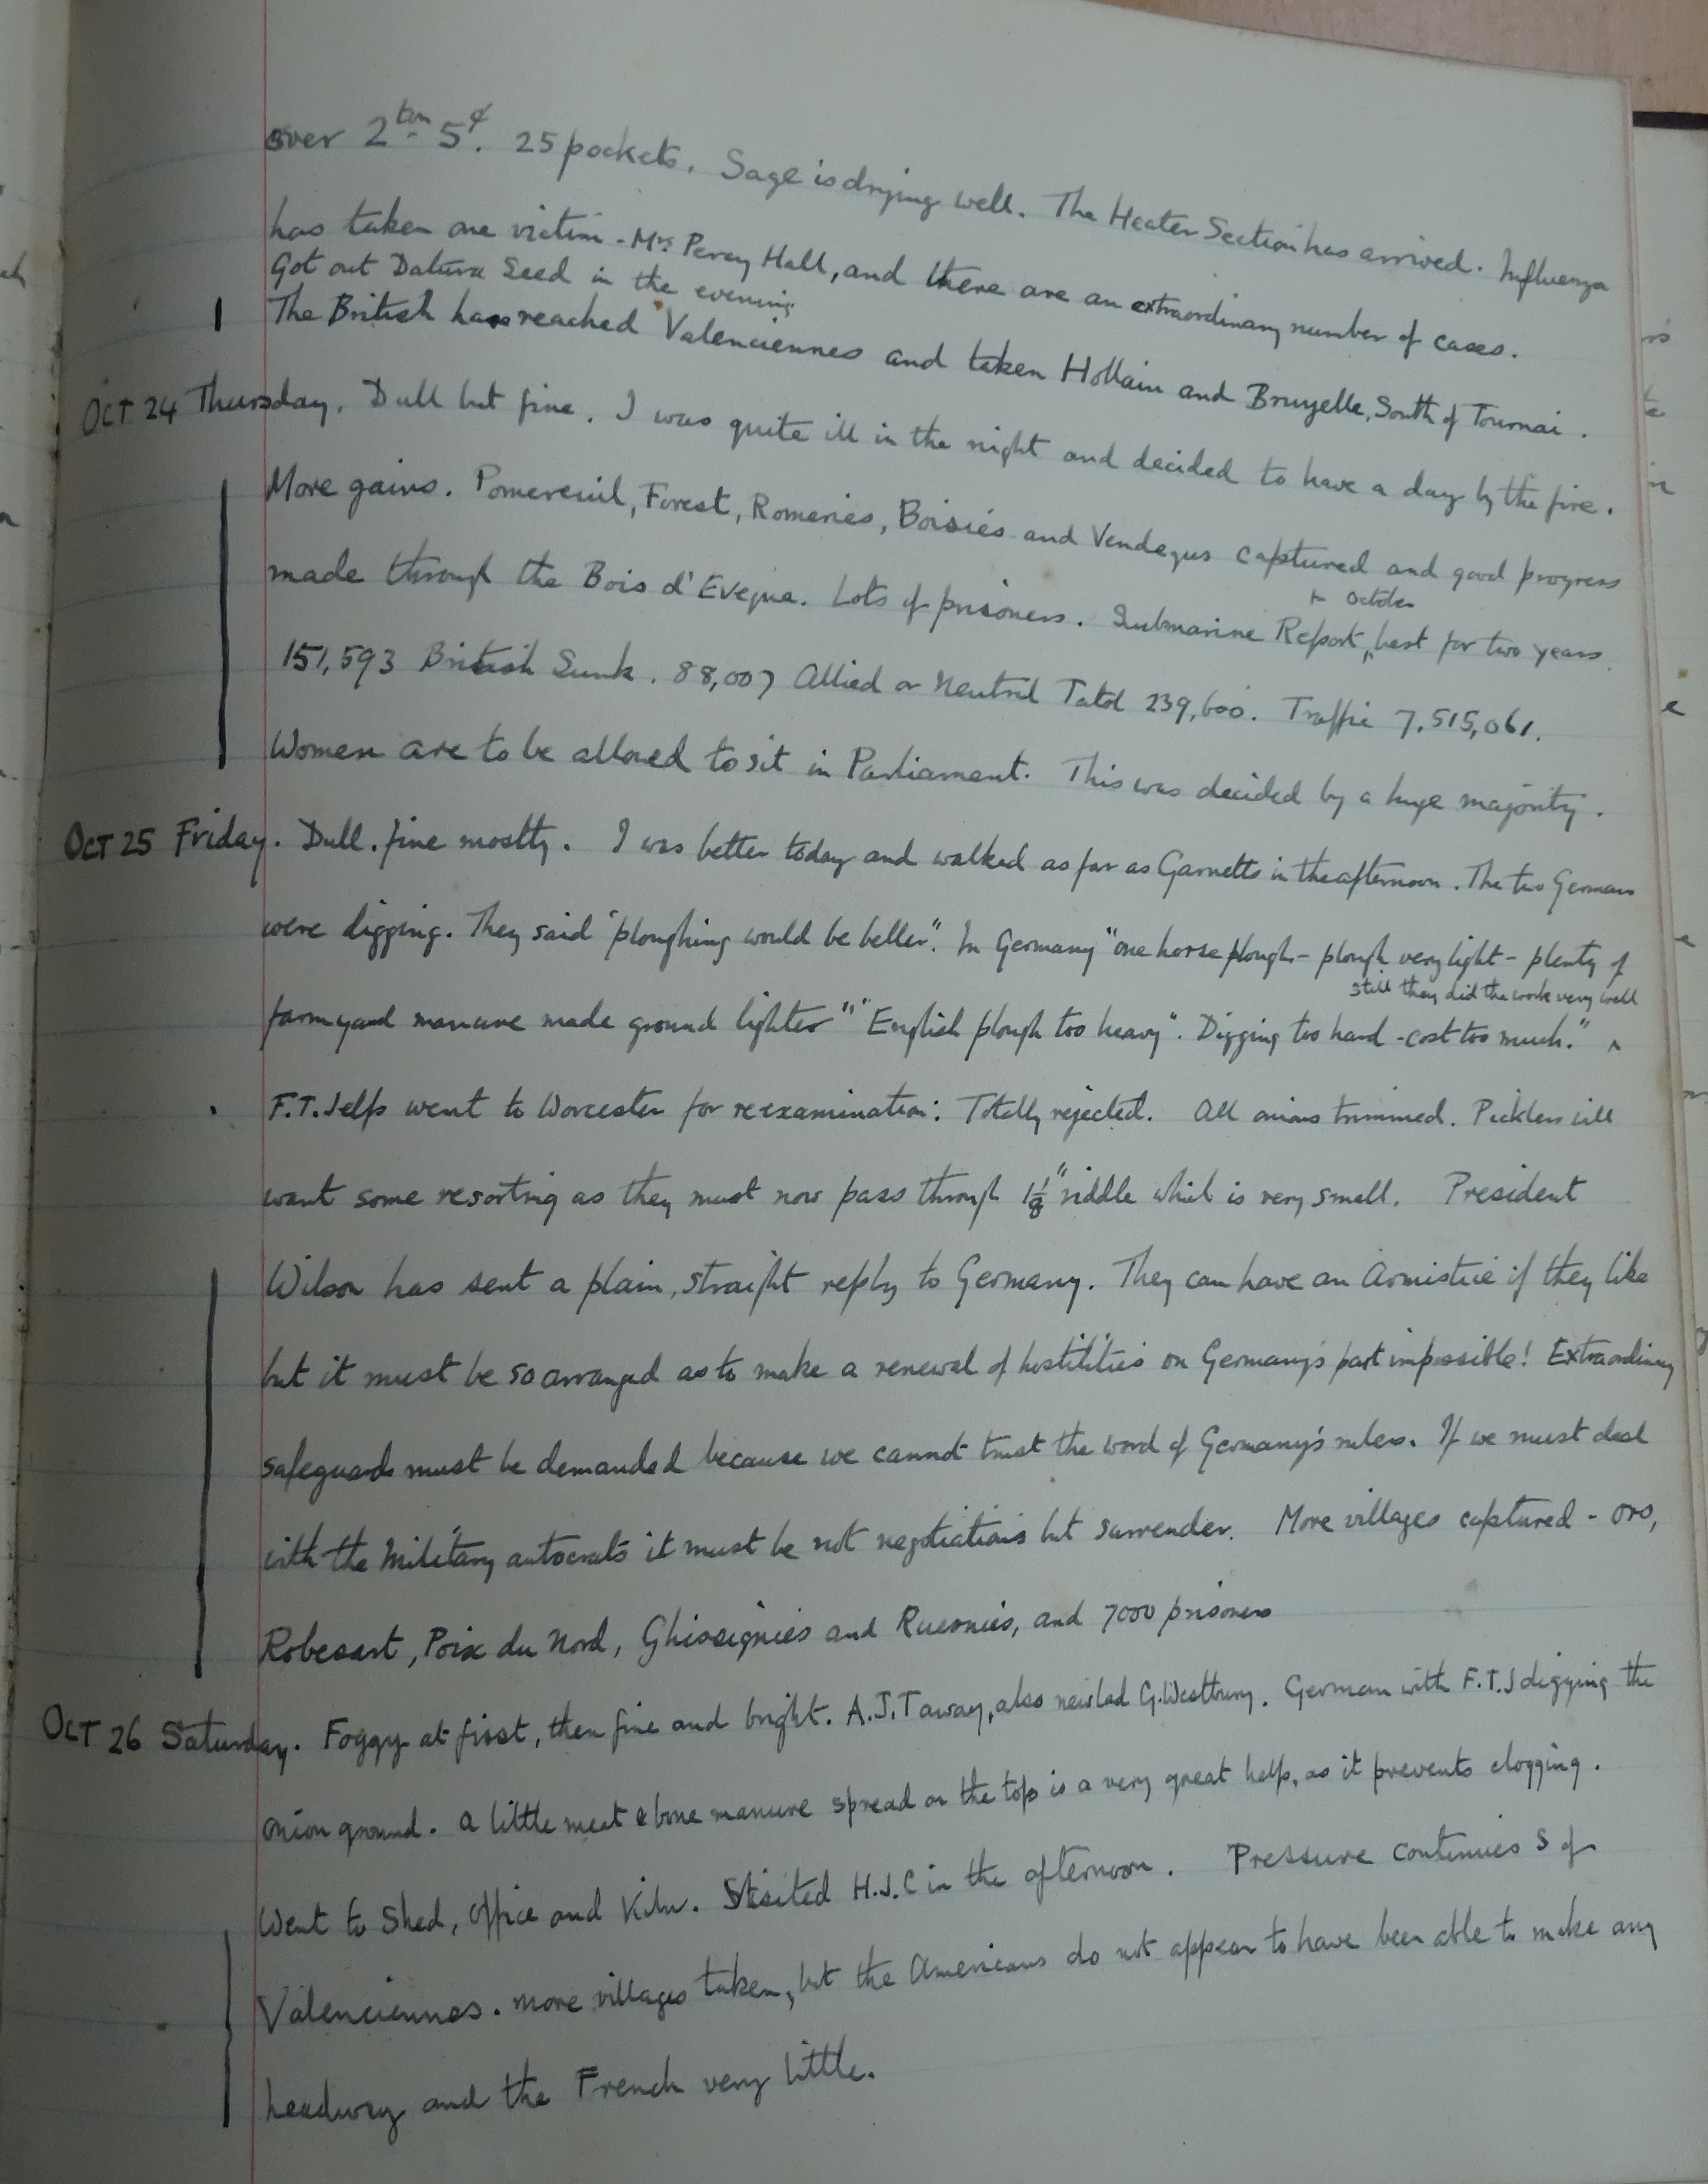 over 2 ton 5 ¢. 25 pockets. Sage is drying well. The Heater Section has arrived. Influenza
has taken one victim - Mrs Percy Hall, and there are an extraordinary number of cases.
Got out Datura Seed in the evening
The British have reached Valenciennes and taken Hollain and Bruyelle, South of Tournai.
OCT 24 Thursday. Dull but fine. I was quite ill in the night and decided to have a day by the fire.
More gains. Pomereuil, Forest, Romeries, Boisies and Vendegus captured and good progress
made through the Bois d'Eveque. Lots of prisoners. Submarine Report, for October best for two years.
151,593 British Sunk. 88,007 Allied or Neutral Total 239,600. Traffic 7,515,061.
Women are to be allowed to sit in Parliament. This was decided by a huge majority.
OCT 25 Friday. Dull. fine mostly. I was better today and walked as far as Garnetts in the afternoon. The two Germans
were digging. They said "ploughing would be better". In Germany "one horse plough - plough very light - plenty of
farmyard manure made ground lighter" "English plough too heavy". Digging too hard - cost too much." still they did the work very well
F.T. Jelfs went to Worcester for reexamination: Totally rejected. All onions trimmed. Picklers will
want some resorting as they must now pass through 1 1/8" riddle which is very small. President
Wilson has sent a plain, straight reply to Germany. They can have an Armistice if they like
but it must be so arranged as to make a renewal of hostilities on Germany's part impossible! Extraordinary
safeguards must be demanded because we cannot trust the word of Germany's rulers. If we must deal
with the Military autocrats it must be not negotiations but surrender. More villages captured - Ors,
Robesart, Poix du Nord, Ghissignies and Ruesnies, and 7000 prisoners
OCT 26 Saturday. Foggy at first, then fine and bright. A.J.T away, also new lad G. Westbury. German with F.T.J digging the
onion ground. A little meat & bone manure spread on the top is a very great help, as it prevents clogging.
Went to Shed, Office and Kiln. Visited H.J.C in the afternoon. Pressure continues S of
Valenciennes. more villages taken, but the Americans do not appear to have been able to make any
headway and the French very little.